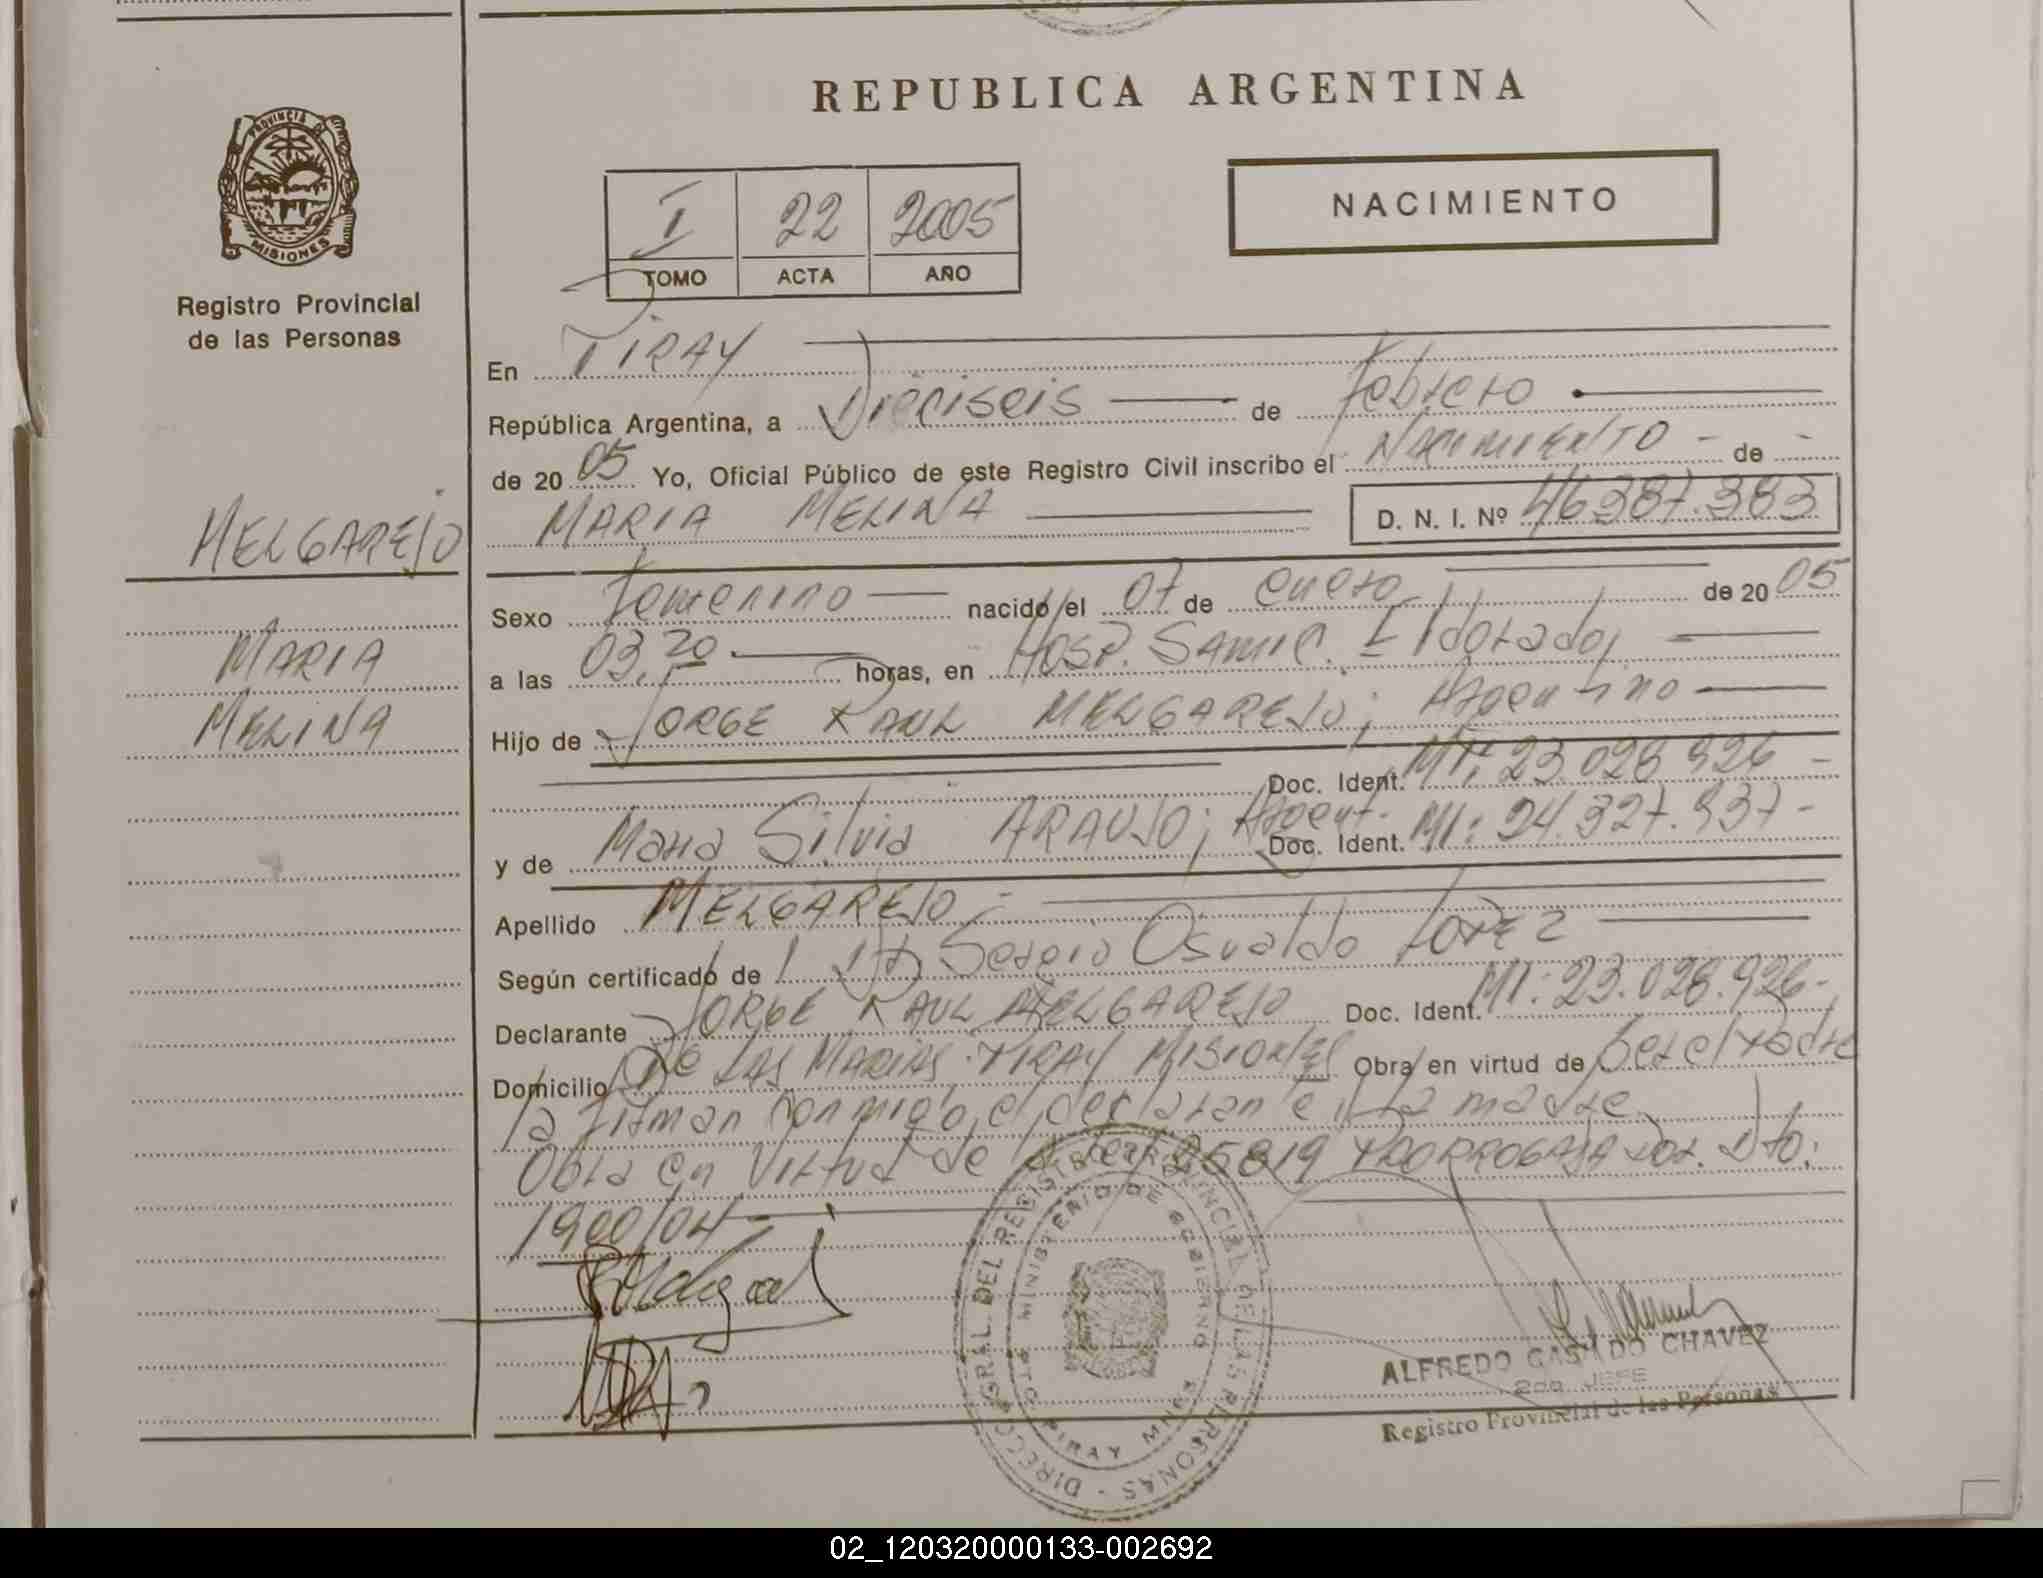 REPUBLICA ARGENTINA
PROVINCIA DE
MISIONES
Registro Provincial
de las Personas
I 22 2005
TOMO ACTA AÑO
NACIMIENTO
En PIRAY
República Argentina, a Dieciseis de febrero
de 20 05 Yo, Oficial Público de este Registro Civil inscribo el NACIMIENTO - de -
MELGAREJO
MARIA MELINA D. N. I. Nº 46387.383
MARIA
MELINA
Sexo femenino nacido el 07 de enero de 20 05
a las 03,20 horas, en HOSP. SAMIC. Eldorado,
Hijo de JORGE RAUL MELGAREJO; Argentino
Doc. Ident. MI: 23.028.926 -
y de Maria Silvia ARAUJO; Argent. Doc. Ident. MI: 24.327.937-
Apellido MELGAREJO -
Según certificado de Sergio Osvaldo LOPEZ
Declarante JORGE RAUL MELGAREJO Doc. Ident. MI: 23.028.926-
Domicilio De LAS MARIAS. PIRAY MISIONES Obra en virtud de Ser el Padre
la firman conmigo el declarante y la madre.
Obra en Virtud de Ley 25819 PRORROGADA POR. Dto:
1900/04-
DIRECC. GRAL. DEL REGISTRO PROVINCIAL DE LAS PERSONAS
MINISTERIO DE GOBIERNO
PTO. PIRAY MNES
ALFREDO CHAVEZ
2do JEFE
Registro Provincial de las Personas
02_120320000133-002692